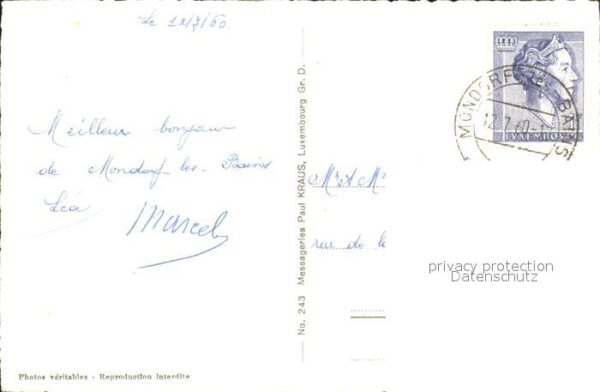 Le 12/7/60
Meilleur bonjour
de Mondorf-les-Bains
Léa
Marcel
No. 243 Messageries Paul KRAUS, Luxembourg Gr. D.
MONDORF-LES-BAINS
12.7.60
LUXEMBOURG
Mr & M
rue de l
privacy protection
Datenschutz
Photos véritables - Reproduction interdite